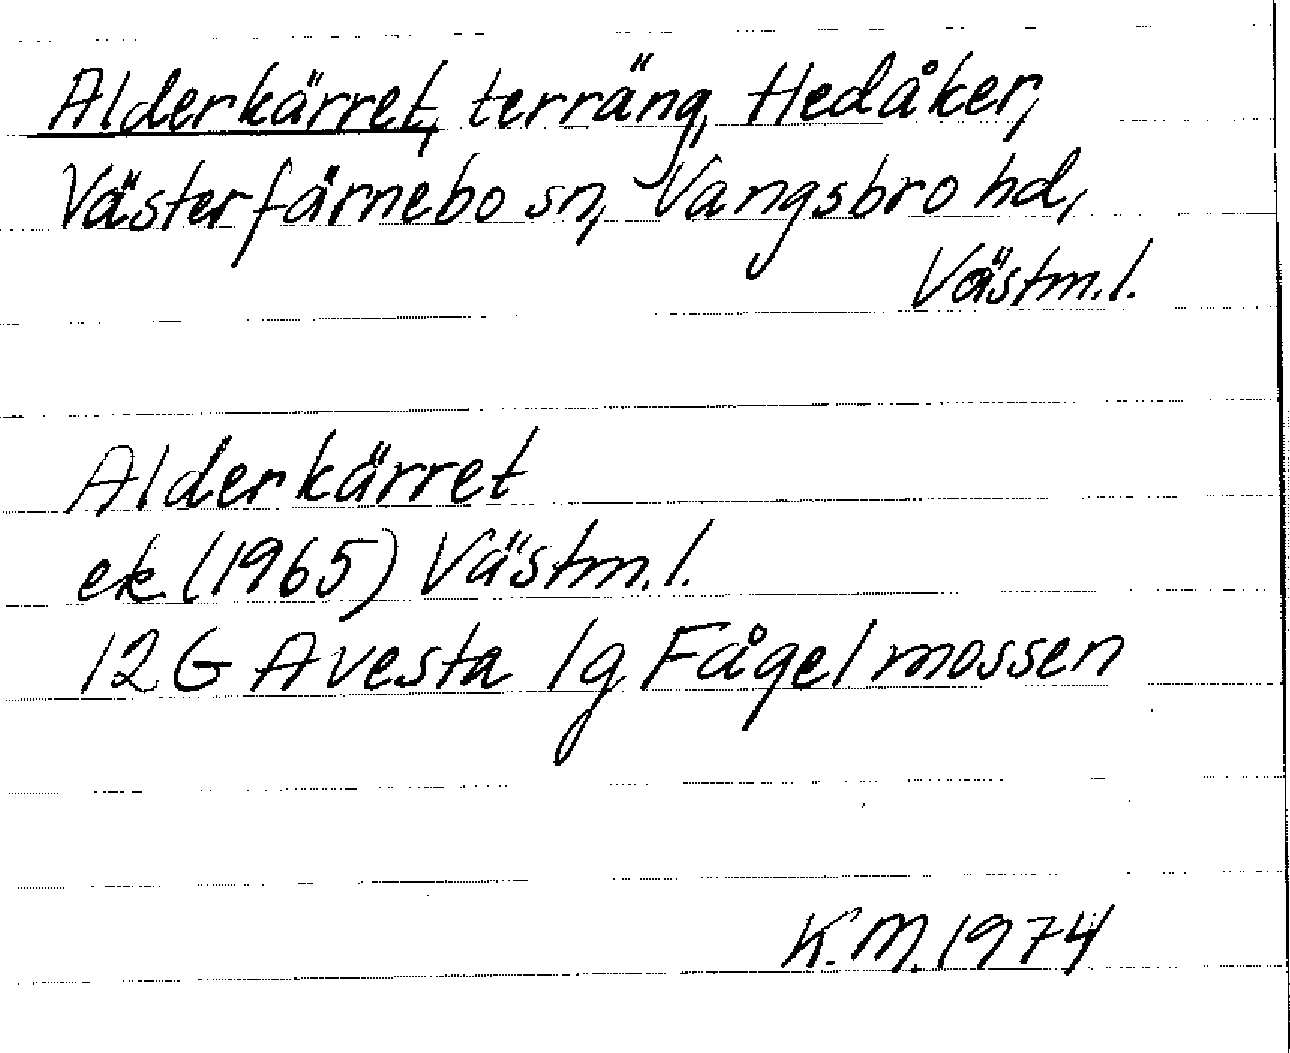 Alderkärret, terräng, Hedåker,
Västerfärnebo sn, Vangsbro hd,
Västm. l.
Alderkärret
ek (1965) Västm. l.
12 G Avesta 1g Fågelmossen
K.M. 1974